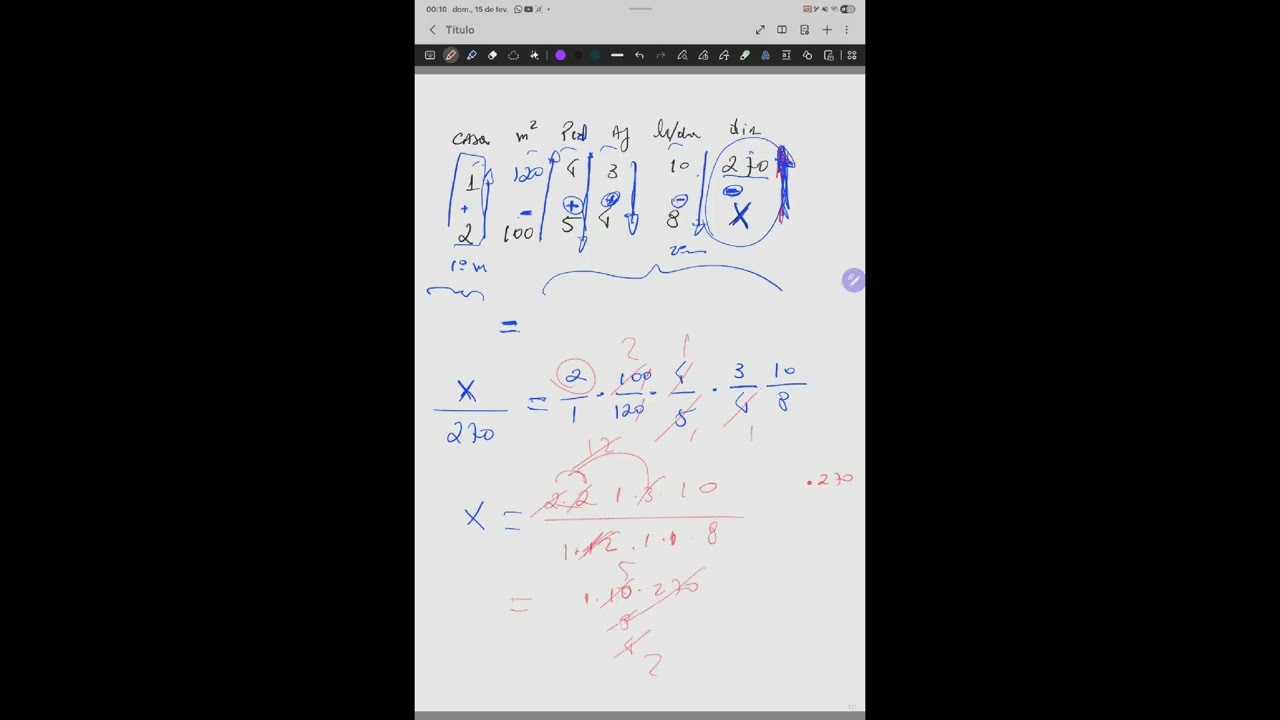 00:10 dom., 15 de fev.
Título
casa m² Ped Aj h/dia dia
1 120 4 3 10 270
+ - + + - -
2 100 5 4 8 X
1º m
=
2 1
X/270 = 2/1 · 100/120 · 4/5 · 3/4 10/8
1 1
12
· 270
X = 2·2 1·3·10
1·12·1·1·8
5
= 1·10·270
8
4
2
1/1